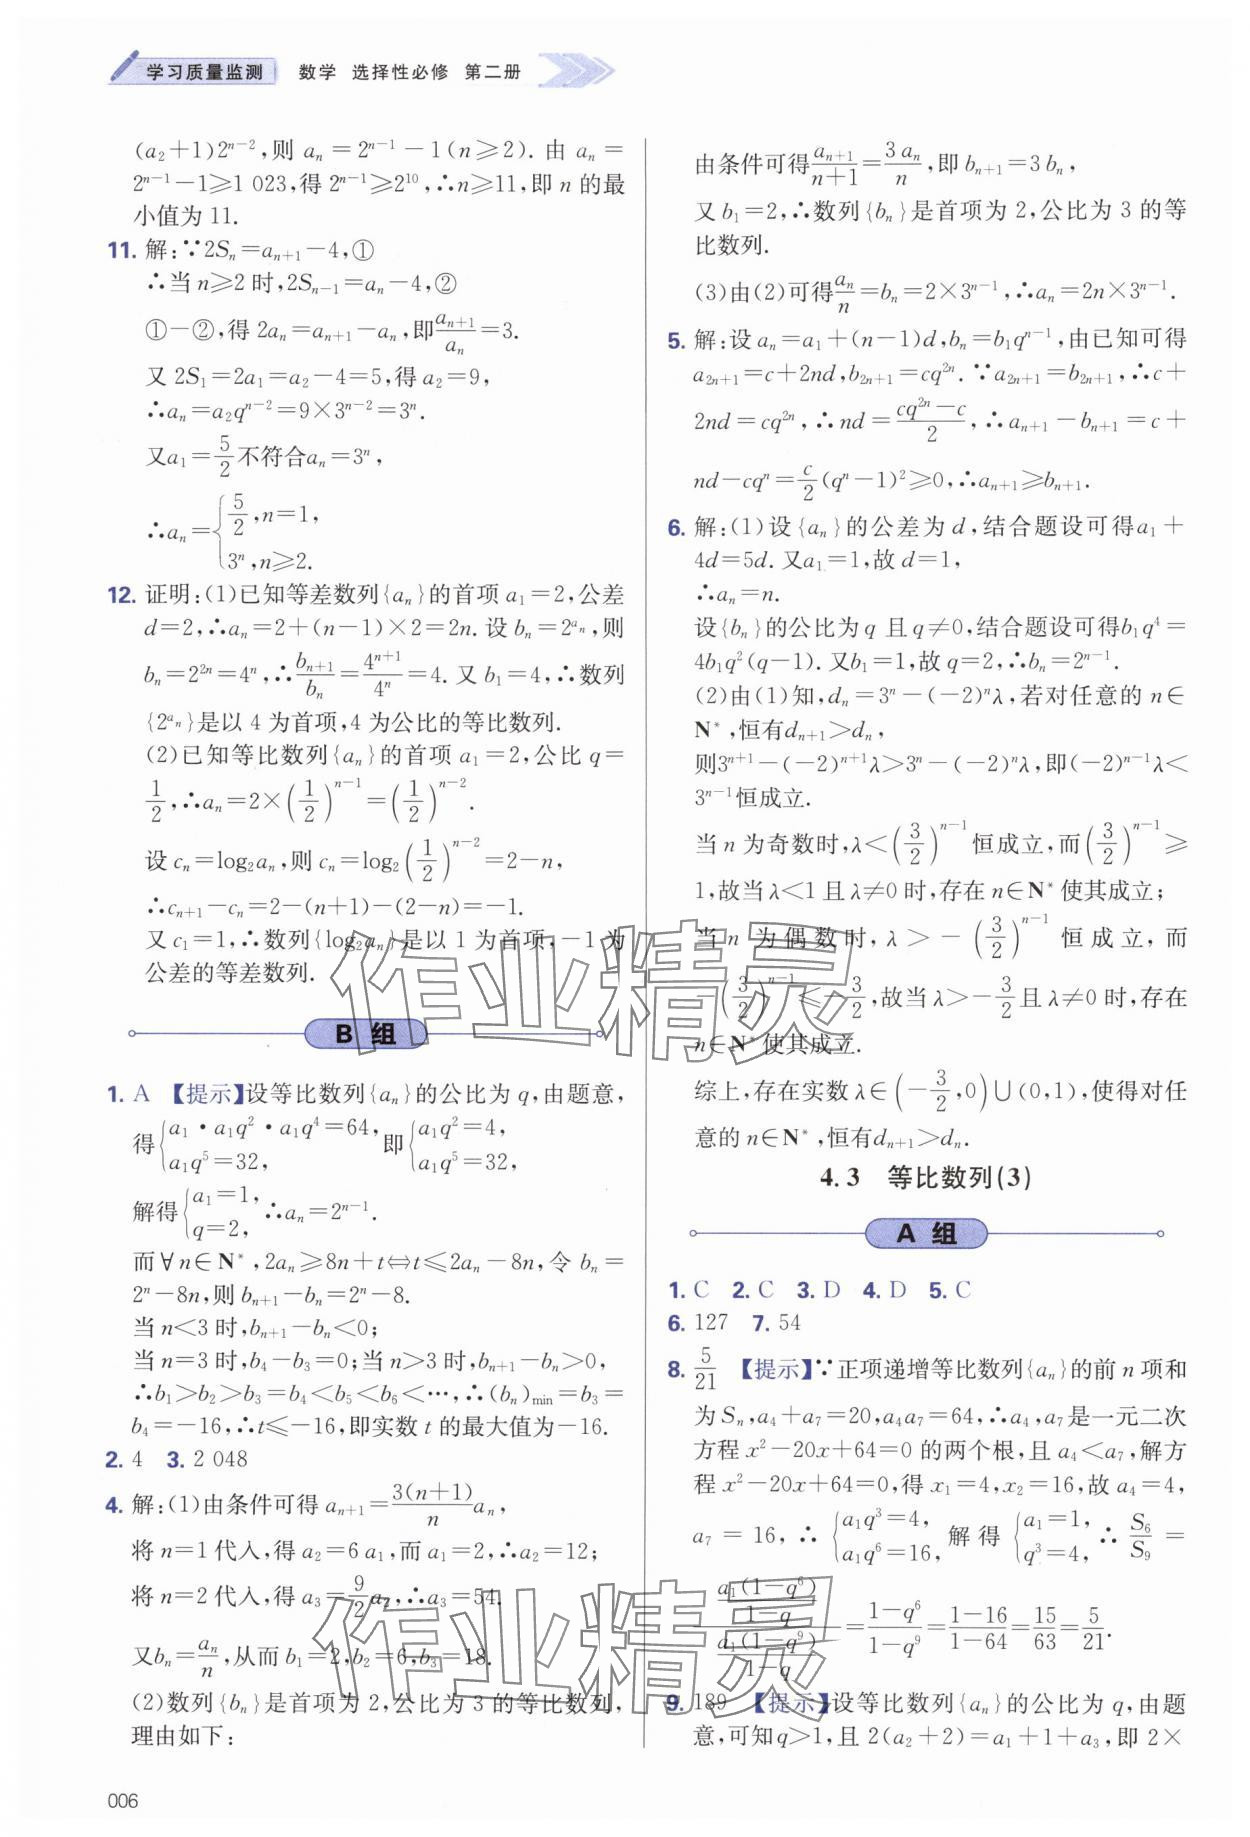 学习质量监测 数学 选择性必修 第二册
(a₂+1)2ⁿ⁻²,则 aₙ=2ⁿ⁻¹-1(n≥2). 由 aₙ=
2ⁿ⁻¹-1≥1 023,得 2ⁿ⁻¹≥2¹⁰,∴n≥11,即 n 的最
小值为 11.
11. 解:∵2Sₙ=aₙ₊₁-4,①
∴当 n≥2 时,2Sₙ₋₁=aₙ-4,②
①-②,得 2aₙ=aₙ₊₁-aₙ,即 aₙ₊₁/aₙ=3.
又 2S₁=2a₁=a₂-4=5,得 a₂=9,
∴aₙ=a₂qⁿ⁻²=9×3ⁿ⁻²=3ⁿ.
又a₁=5/2不符合aₙ=3ⁿ,
∴aₙ={5/2,n=1,
3ⁿ,n≥2.
12. 证明:(1)已知等差数列{aₙ}的首项 a₁=2,公差
d=2,∴aₙ=2+(n-1)×2=2n. 设 bₙ=2^(aₙ),则
bₙ=2²ⁿ=4ⁿ,∴bₙ₊₁/bₙ=4ⁿ⁺¹/4ⁿ=4. 又 b₁=4,∴数列
{2^(aₙ)}是以 4 为首项,4 为公比的等比数列.
(2)已知等比数列{aₙ}的首项 a₁=2,公比 q=
1/2,∴aₙ=2×(1/2)ⁿ⁻¹=(1/2)ⁿ⁻².
设 cₙ=log₂aₙ,则 cₙ=log₂(1/2)ⁿ⁻²=2-n,
∴cₙ₊₁-cₙ=2-(n+1)-(2-n)=-1.
又 c₁=1,∴数列{log₂aₙ}是以 1 为首项,-1 为
公差的等差数列.
B 组
1. A 【提示】设等比数列{aₙ}的公比为 q,由题意,
得{a₁·a₁q²·a₁q⁴=64, a₁q⁵=32, 即{a₁q²=4, a₁q⁵=32,
解得{a₁=1, q=2, ∴aₙ=2ⁿ⁻¹.
而∀n∈N*,2aₙ≥8n+t⇔t≤2aₙ-8n,令 bₙ=
2ⁿ-8n,则 bₙ₊₁-bₙ=2ⁿ-8.
当 n<3 时,bₙ₊₁-bₙ<0;
当 n=3 时,b₄-b₃=0;当 n>3 时,bₙ₊₁-bₙ>0,
∴b₁>b₂>b₃=b₄<b₅<b₆<…,∴(bₙ)min=b₃=
b₄=-16,∴t≤-16,即实数 t 的最大值为-16.
2. 4 3. 2 048
4. 解:(1)由条件可得 aₙ₊₁=3(n+1)/n aₙ,
将 n=1 代入,得 a₂=6a₁,而 a₁=2,∴a₂=12;
将 n=2 代入,得 a₃=9/2 a₂,∴a₃=54.
又bₙ=aₙ/n,从而 b₁=2,b₂=6,b₃=18.
(2)数列{bₙ}是首项为 2,公比为 3 的等比数列,
理由如下:
006
由条件可得 aₙ₊₁/(n+1)=3aₙ/n,即 bₙ₊₁=3bₙ,
又 b₁=2,∴数列{bₙ}是首项为 2,公比为 3 的等
比数列.
(3)由(2)可得 aₙ/n=bₙ=2×3ⁿ⁻¹,∴aₙ=2n×3ⁿ⁻¹.
5. 解:设 aₙ=a₁+(n-1)d,bₙ=b₁qⁿ⁻¹,由已知可得
a₂ₙ₊₁=c+2nd,b₂ₙ₊₁=cq²ⁿ. ∵a₂ₙ₊₁=b₂ₙ₊₁,∴c+
2nd=cq²ⁿ,∴nd=(cq²ⁿ-c)/2,∴aₙ₊₁-bₙ₊₁=c+
nd-cqⁿ=c/2(qⁿ-1)²≥0,∴aₙ₊₁≥bₙ₊₁.
6. 解:(1)设{aₙ}的公差为 d,结合题设可得a₁+
4d=5d. 又a₁=1,故 d=1,
∴aₙ=n.
设{bₙ}的公比为 q 且 q≠0,结合题设可得b₁q⁴=
4b₁q²(q-1). 又b₁=1,故 q=2,∴bₙ=2ⁿ⁻¹.
(2)由(1)知,dₙ=3ⁿ-(-2)ⁿλ,若对任意的 n∈
N*,恒有dₙ₊₁>dₙ,
则3ⁿ⁺¹-(-2)ⁿ⁺¹λ>3ⁿ-(-2)ⁿλ,即(-2)ⁿ⁻¹λ<
3ⁿ⁻¹恒成立.
当 n 为奇数时,λ<(3/2)ⁿ⁻¹恒成立,而(3/2)ⁿ⁻¹≥
1,故当 λ<1 且 λ≠0 时,存在 n∈N*使其成立;
当 n 为偶数时,λ>-(3/2)ⁿ⁻¹恒成立,而
-(3/2)ⁿ⁻¹≤-3/2,故当 λ>-3/2且 λ≠0 时,存在
n∈N*使其成立.
综上,存在实数 λ∈(-3/2,0)∪(0,1),使得对任
意的 n∈N*,恒有dₙ₊₁>dₙ.
4.3 等比数列(3)
A 组
1. C 2. C 3. D 4. D 5. C
6. 127 7. 54
8. 5/21 【提示】∵正项递增等比数列{aₙ}的前 n 项和
为 Sₙ,a₄+a₇=20,a₄a₇=64,∴a₄,a₇是一元二次
方程 x²-20x+64=0 的两个根,且 a₄<a₇,解方
程 x²-20x+64=0,得 x₁=4,x₂=16,故 a₄=4,
a₇=16,∴{a₁q³=4, a₁q⁶=16, 解得{a₁=1, q³=4, ∴S₆/S₉=
[a₁(1-q⁶)/(1-q)]/[a₁(1-q⁹)/(1-q)]=(1-q⁶)/(1-q⁹)=(1-16)/(1-64)=15/63=5/21.
9. 189 【提示】设等比数列{aₙ}的公比为 q,由题
意,可知q>1,且 2(a₂+2)=a₁+1+a₃,即 2×
作业精灵
作业精灵